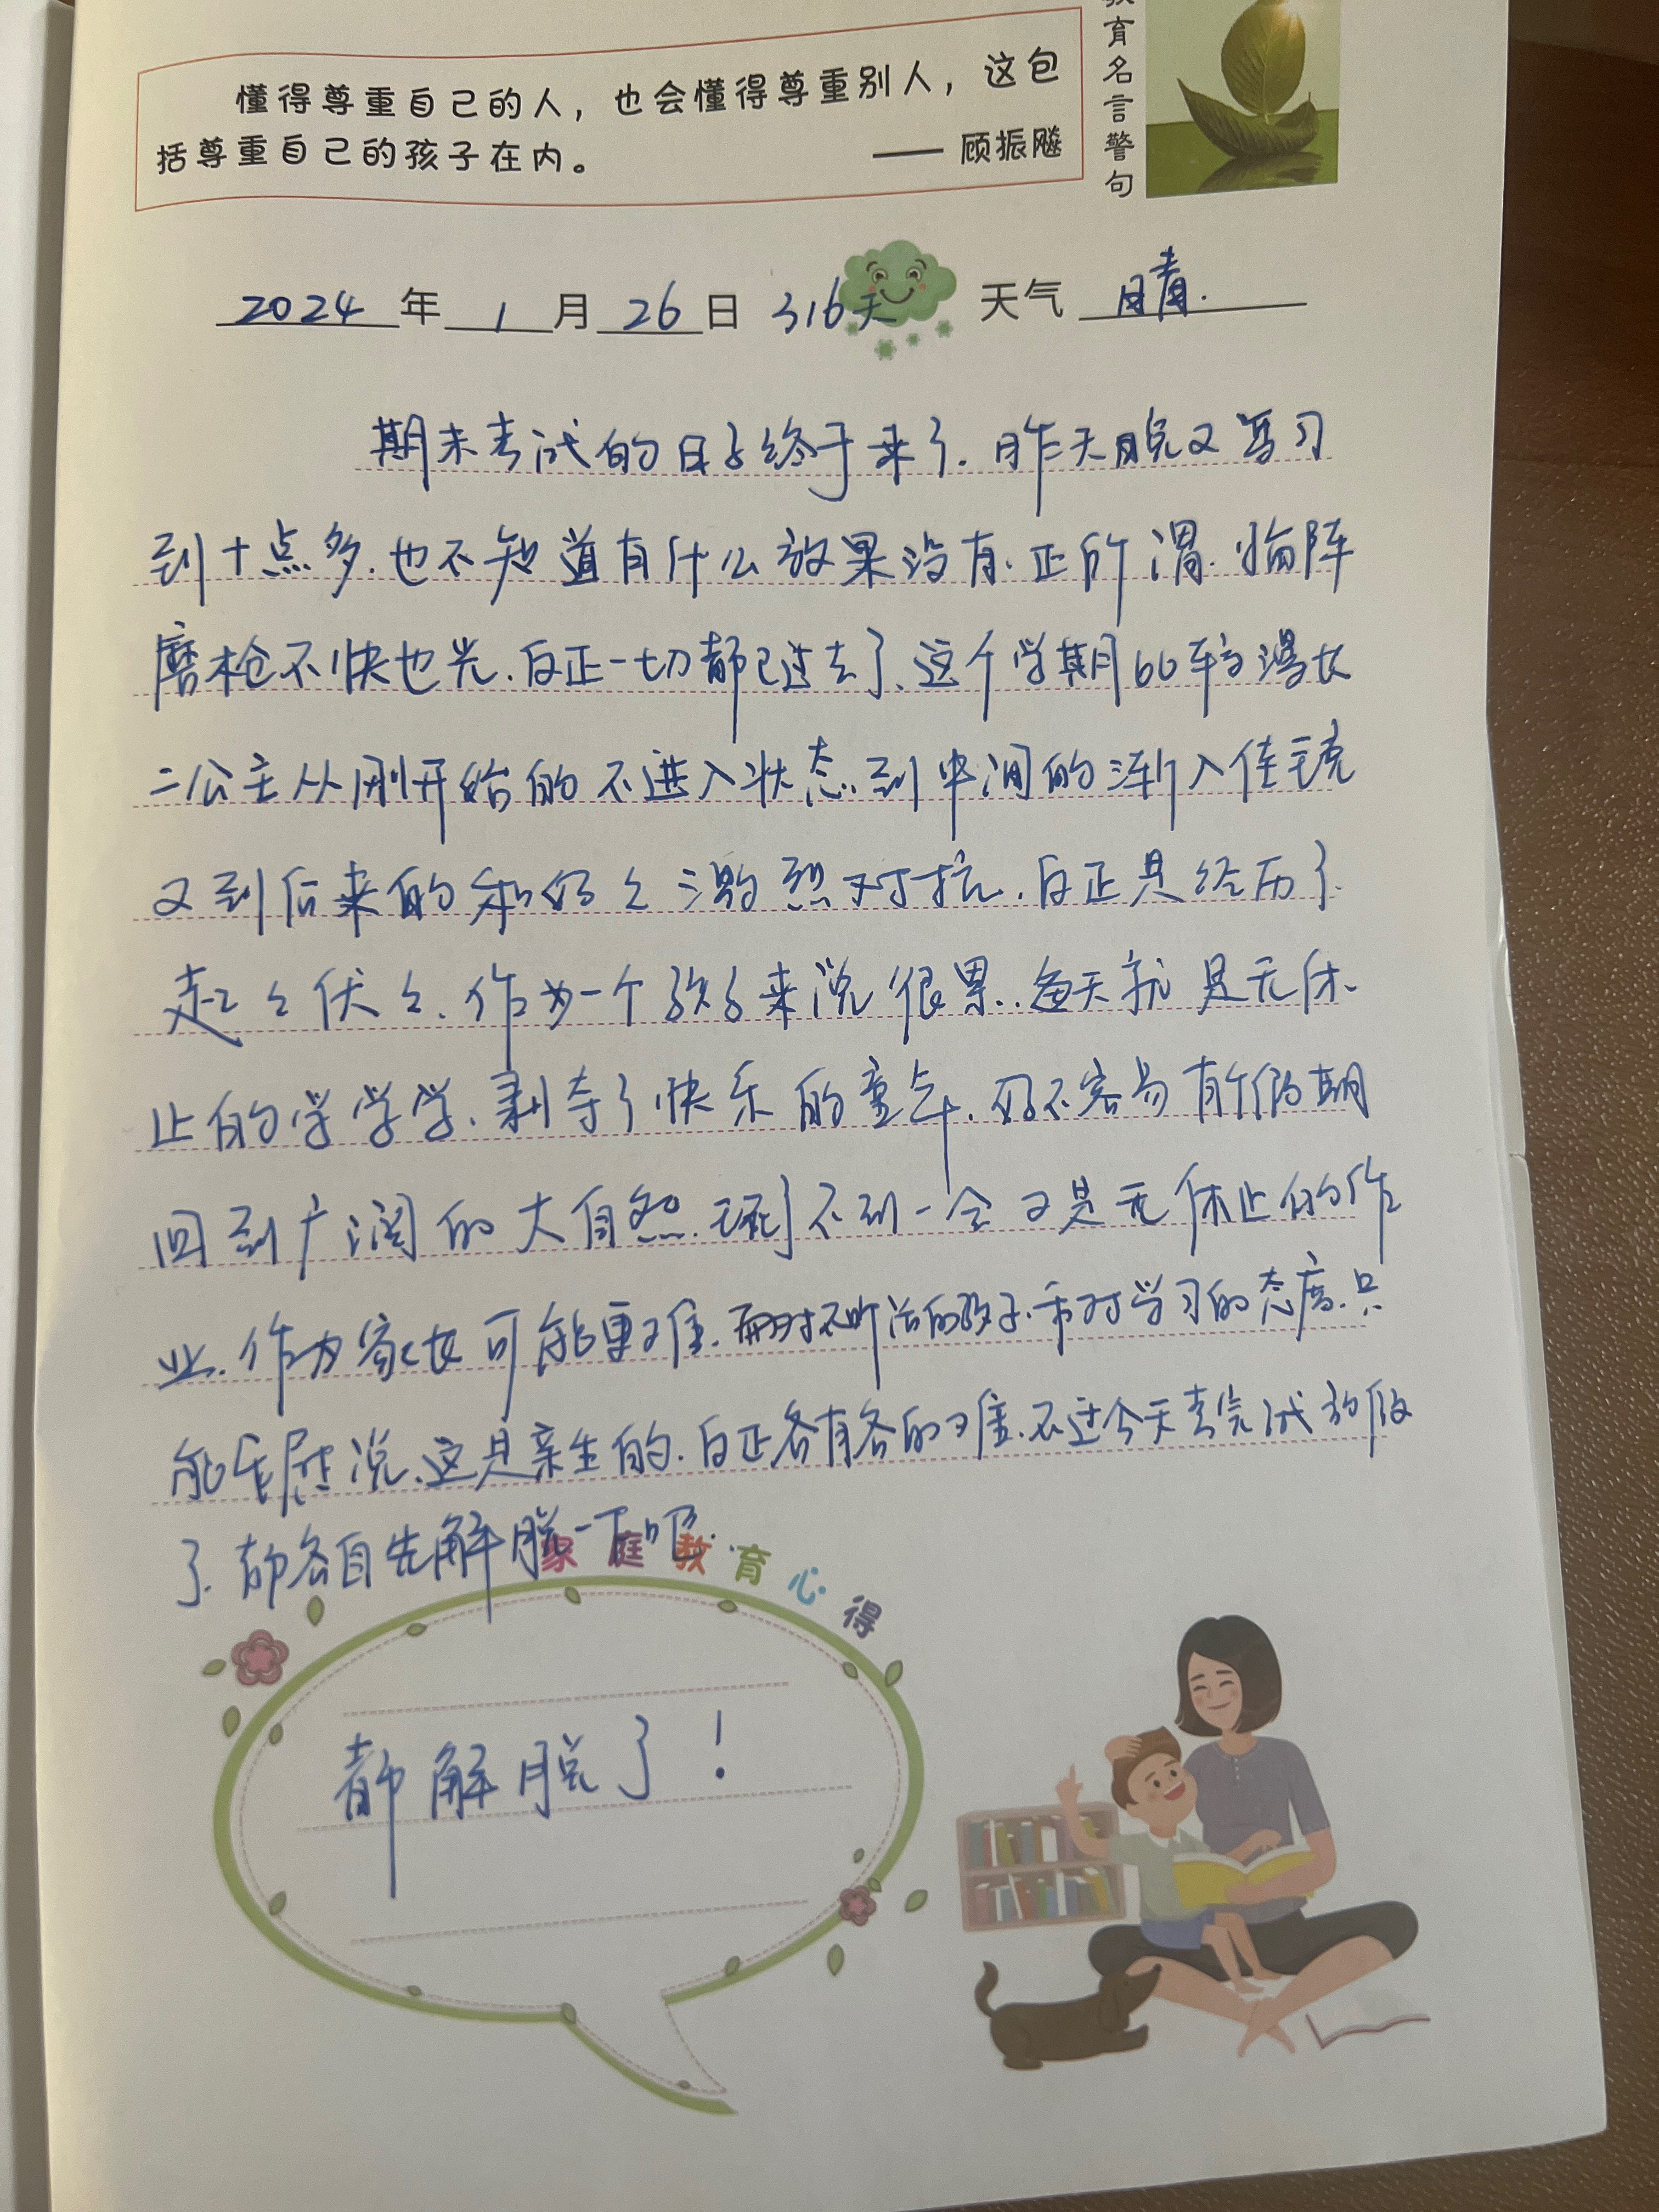 教育名言警句
懂得尊重自己的人，也会懂得尊重别人，这包
括尊重自己的孩子在内。
—— 顾振飚
2024年1月26日 316天 天气 晴.
期末考试的日子终于来了.昨天晚又复习
到十点多.也不知道有什么效果没有.正所谓.临阵
磨枪不快也光.反正一切都已过去了.这个学期比较漫长
二公主从刚开始的不进入状态.到中间的渐入佳境
又到后来的和好々激烈对抗.反正是经历了
起々伏々.作为一个孩子来说很累..每天就是无休
止的学学学.剥夺了快乐的童年.好不容易有个假期
回到广阔的大自然.玩了不到一会又是无休止的作
业.作为家长可能更难.面对不听话的孩子.和对学习的态度.只
能 说.这是亲生的.反正各有各的难.不过今天考完试放假
了.都各自先解脱一下吧.
家庭教育心得
都解脱了！